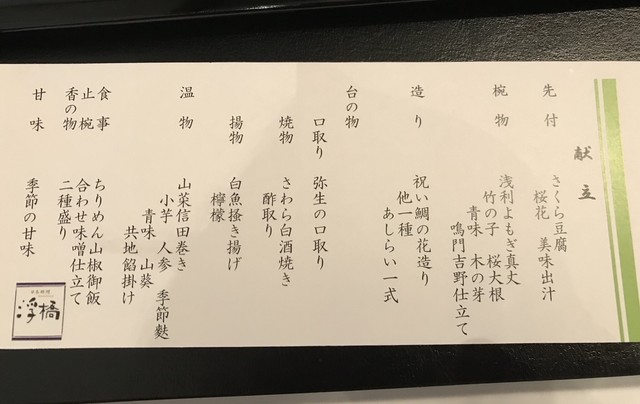 献立
先付
さくら豆腐
桜花 美味出汁
椀物
浅利よもぎ真丈
竹の子 桜大根
青味 木の芽
鳴門吉野仕立て
造り
祝い鯛の花造り
他一種
あしらい一式
台の物
口取り 弥生の口取り
焼物
さわら白酒焼き
酢取り
揚物
白魚掻き揚げ
檸檬
温物
山菜信田巻き
小芋 人参 季節麩
青味 山葵
共地餡掛け
食事
ちりめん山椒御飯
止椀
合わせ味噌仕立て
香の物
二種盛り
甘味
季節の甘味
浮橋